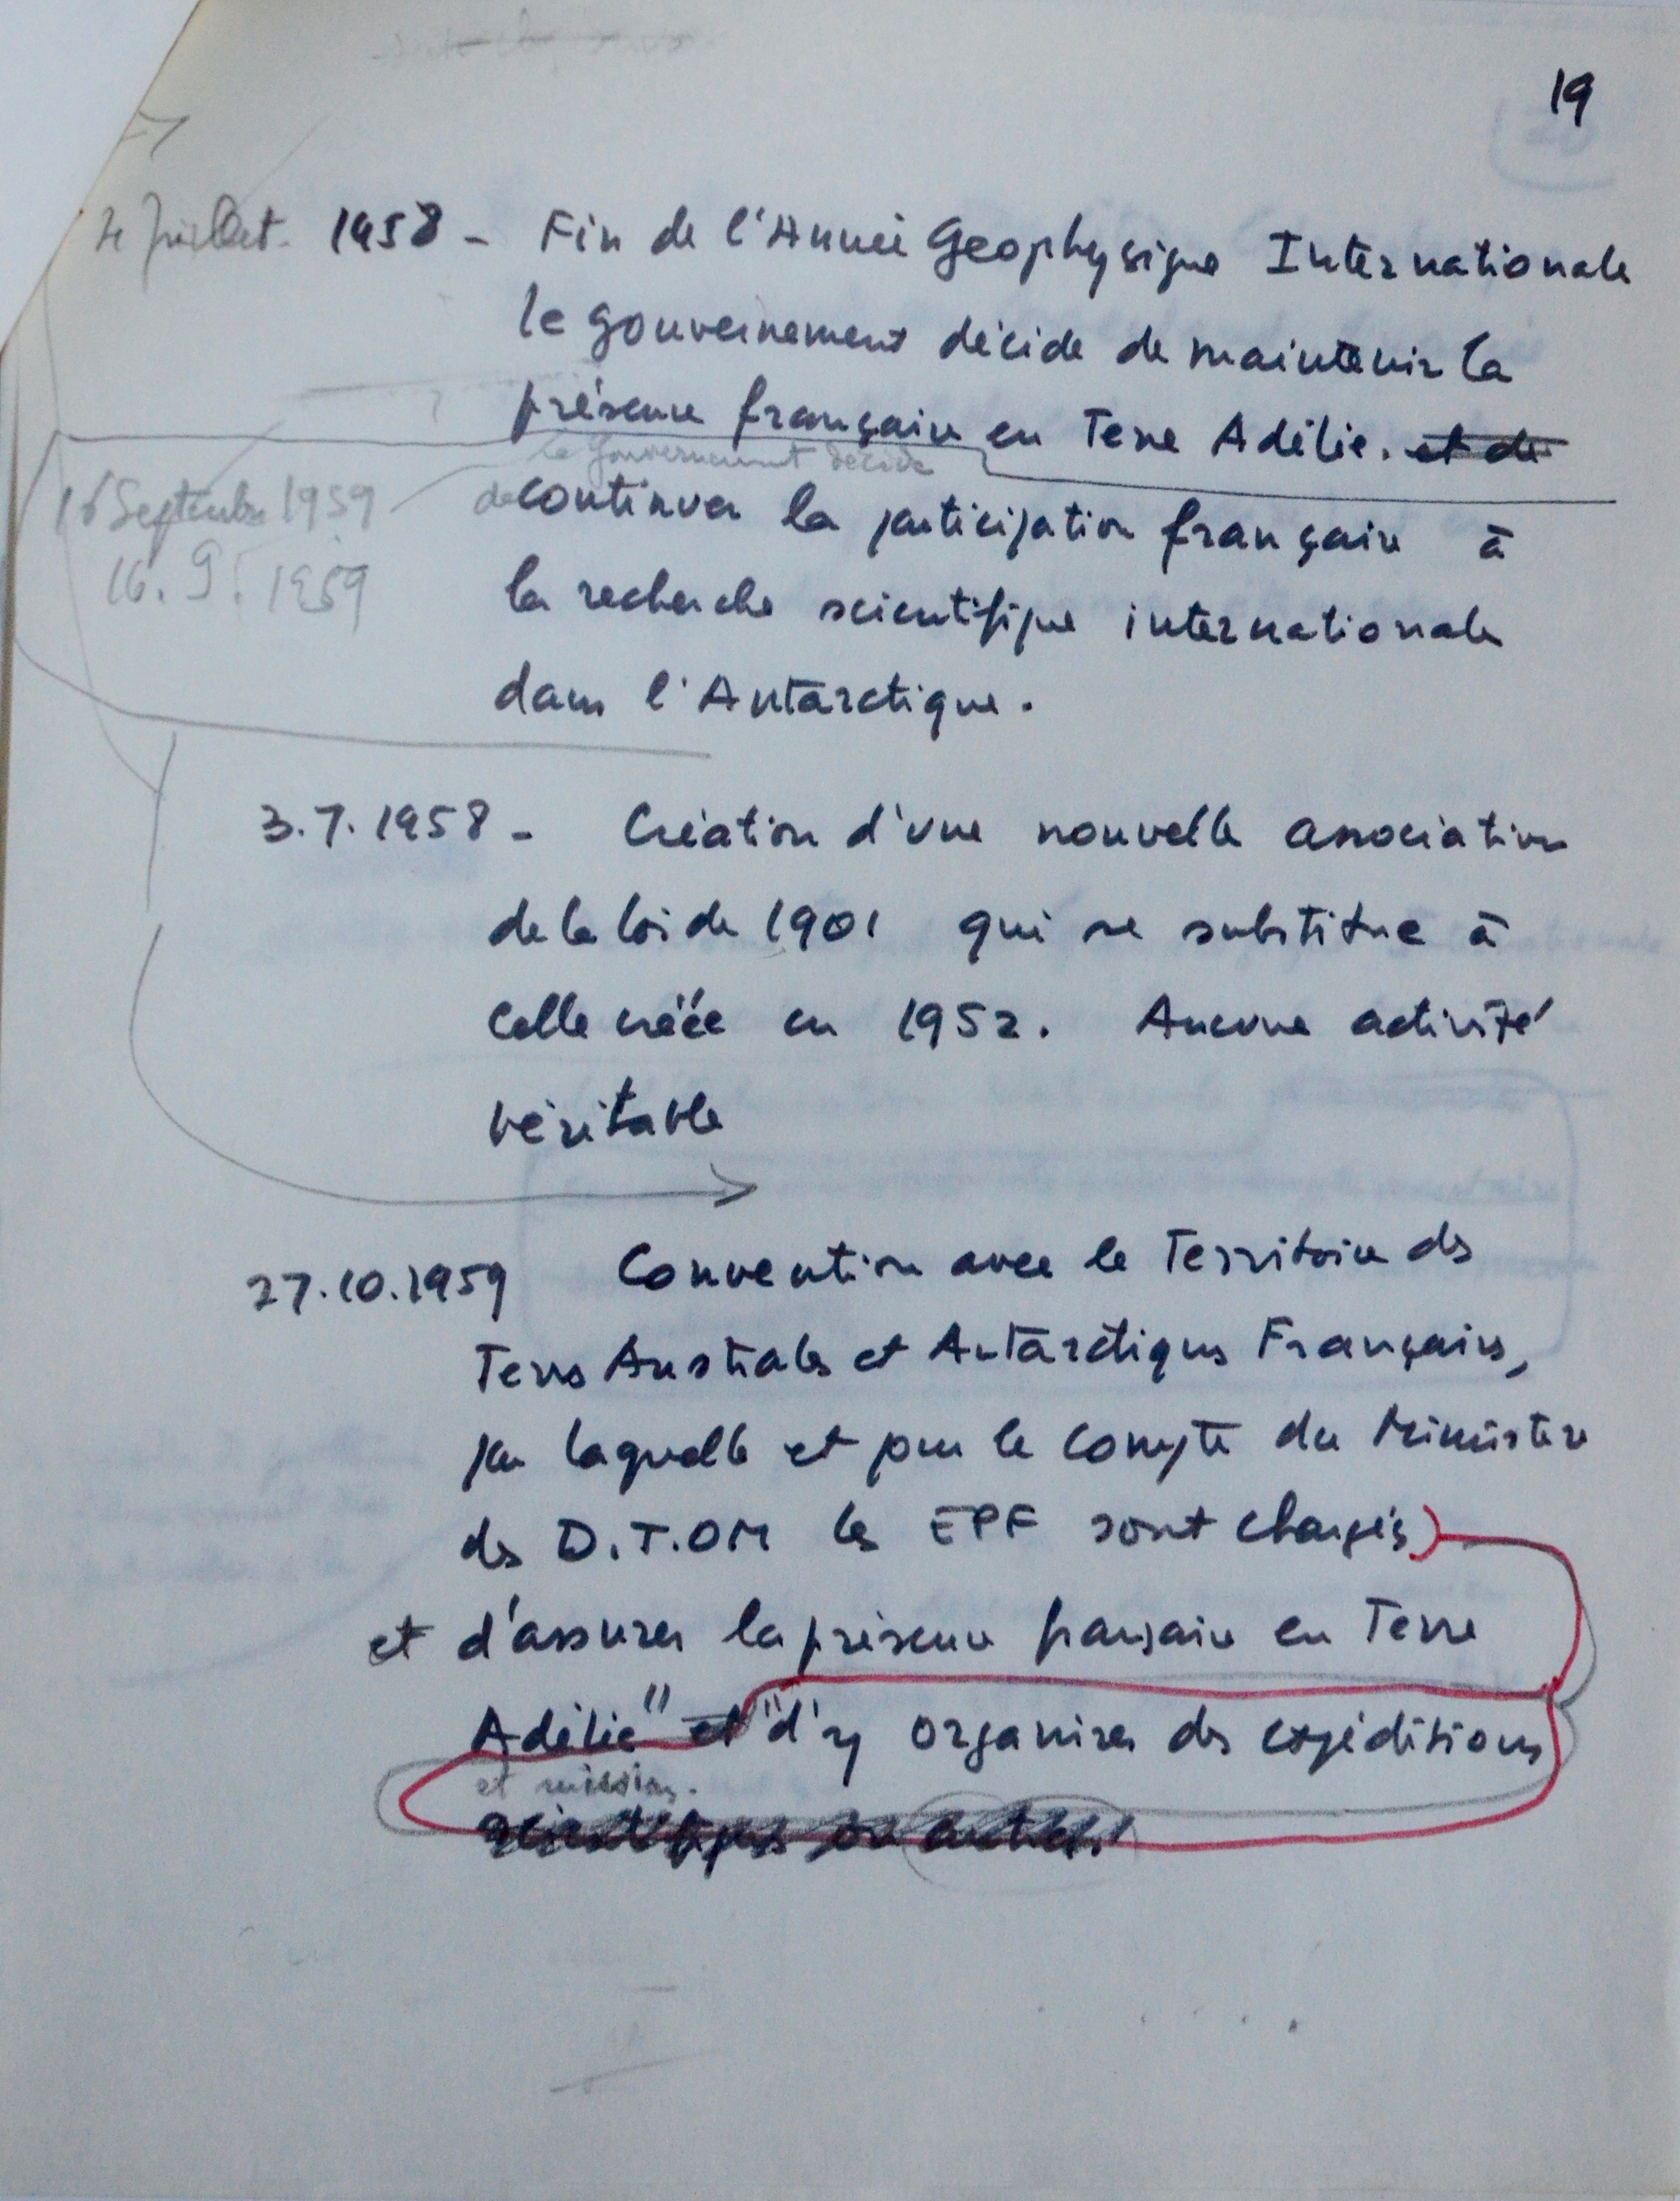 19
4 Juillet 1958 - Fin de l'Année Géophysique Internationale
le gouvernement décide de maintenir la
présence française en Terre Adélie. et de
le Gouvernement décide
16 Septembre 1959 de continuer la participation française à
16. 9. 1959 la recherche scientifique internationale
dans l'Antarctique.
3.7.1958 - Création d'une nouvelle association
de la loi de 1901 qui se substitue à
celle créée en 1952. Aucune activité
véritable
27.10.1959 Convention avec le Territoire des
Terres Australes et Antarctiques Françaises,
par laquelle et pour le compte du Ministère
des D.T.OM les EPF sont chargés
et d'assurer la présence française en Terre
Adélie" et "d'y organiser des expéditions
et missions.
scientifiques ou autres.